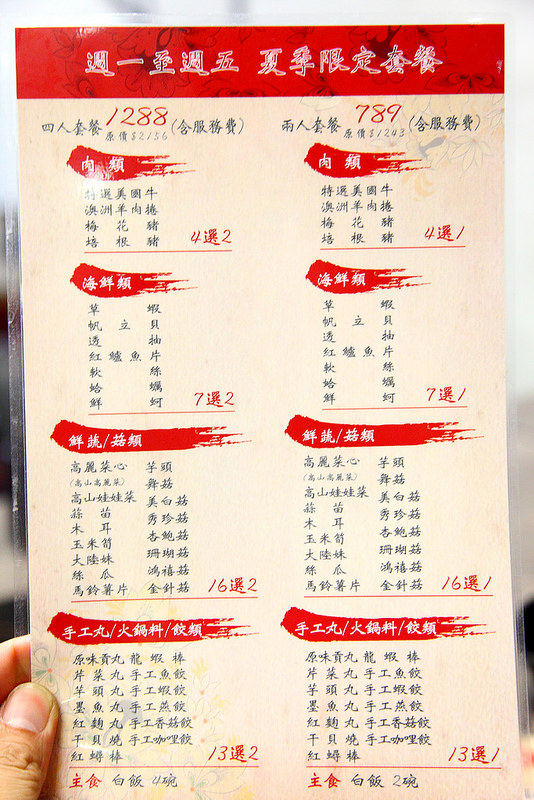 週一至週五 夏季限定套餐
四人套餐 1288 (含服務費)
原價$2156
肉類
特選美國牛
澳洲羊肉捲
梅花豬
培根豬
4選2
海鮮類
草蝦
帆立貝
透抽
紅鱸魚片
軟絲
蛤蠣
鮮蚵
7選2
鮮蔬/菇類
高麗菜心 芋頭
(高山高麗菜) 舞菇
高山娃娃菜 美白菇
蒜苗 秀珍菇
木耳 杏鮑菇
玉米筍 珊瑚菇
大陸妹 鴻禧菇
絲瓜 金針菇
馬鈴薯片
16選2
手工丸/火鍋料/餃類
原味貢丸 龍蝦棒
芹菜丸 手工魚餃
芋頭丸 手工蝦餃
墨魚丸 手工燕餃
紅麴丸 手工香菇餃
干貝燒 手工咖哩餃
紅蟳棒
13選2
主食 白飯 4碗
兩人套餐 789 (含服務費)
原價$1243
肉類
特選美國牛
澳洲羊肉捲
梅花豬
培根豬
4選1
海鮮類
草蝦
帆立貝
透抽
紅鱸魚片
軟絲
蛤蠣
鮮蚵
7選1
鮮蔬/菇類
高麗菜心 芋頭
(高山高麗菜) 舞菇
高山娃娃菜 美白菇
蒜苗 秀珍菇
木耳 杏鮑菇
玉米筍 珊瑚菇
大陸妹 鴻禧菇
絲瓜 金針菇
馬鈴薯片
16選1
手工丸/火鍋料/餃類
原味貢丸 龍蝦棒
芹菜丸 手工魚餃
芋頭丸 手工蝦餃
墨魚丸 手工燕餃
紅麴丸 手工香菇餃
干貝燒 手工咖哩餃
紅蟳棒
13選1
主食 白飯 2碗